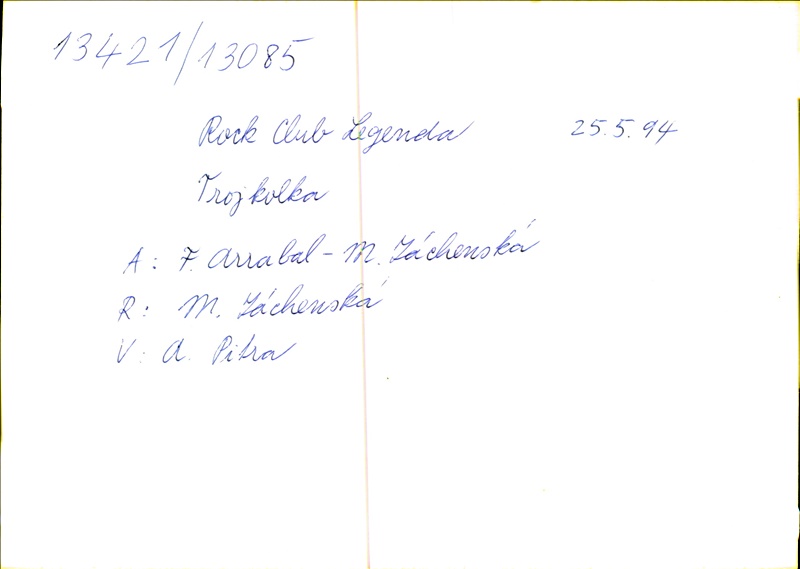 13421/13085
Rock Club Legenda 25.5.94
Trojkolka
A: F. Arrabal - M. Záchenská
R: M. Záchenská
V: A. Pitra